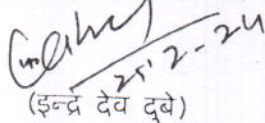 25'2-24
(इन्द्र देव दूबे)